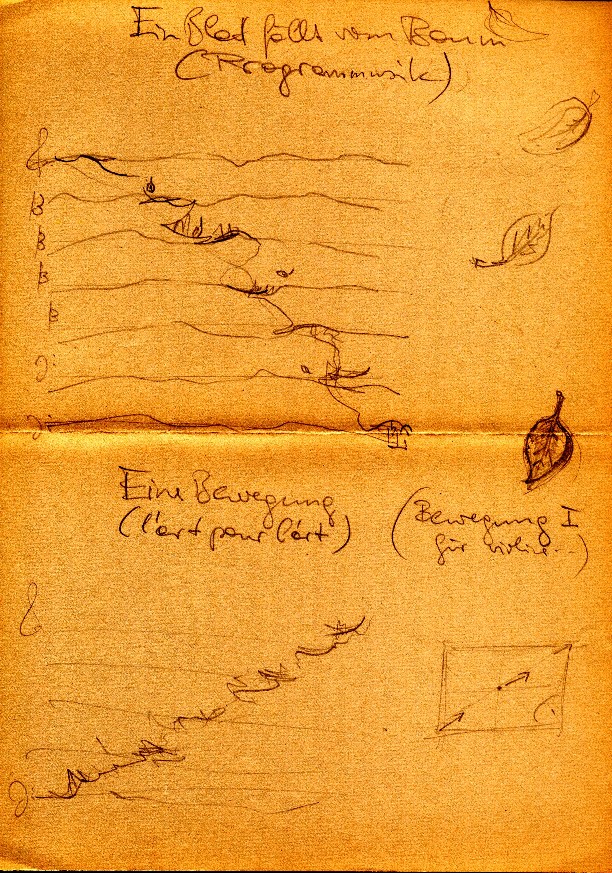 Ein Blatt fällt vom Baum
(Programmusik)
B
B
B
B
Eine Bewegung
(l'art pour l'art)
(Bewegung I
für violine...)